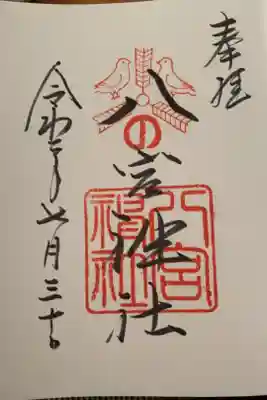 奉拝
八の宮神社
八宮神社
令和二年七月三十日